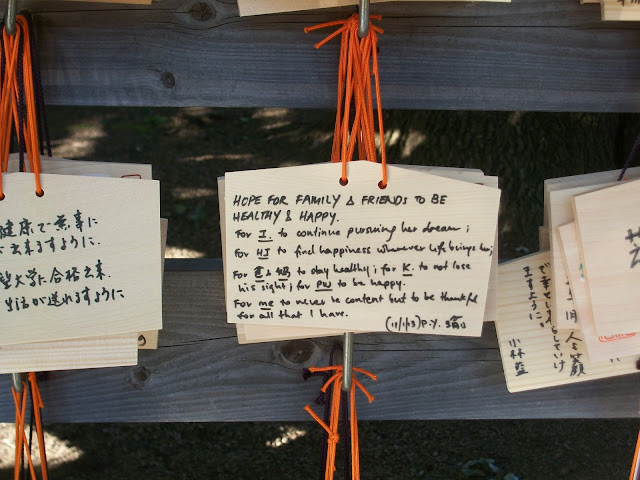 健康で無事に
来ますように.
望大学に合格出来.
生活が送れますように
HOPE FOR FAMILY & FRIENDS TO BE
HEALTHY & HAPPY.
For I. to continue pursuing her dream;
for HJ to find happiness wherever life brings her;
For & to stay healthy; for K. to not lose
his sight; for PW to be happy.
For me to never be content but to be thankful
for all that I have.
(11/1/13) P.Y.
笑顔
ますように。
小林